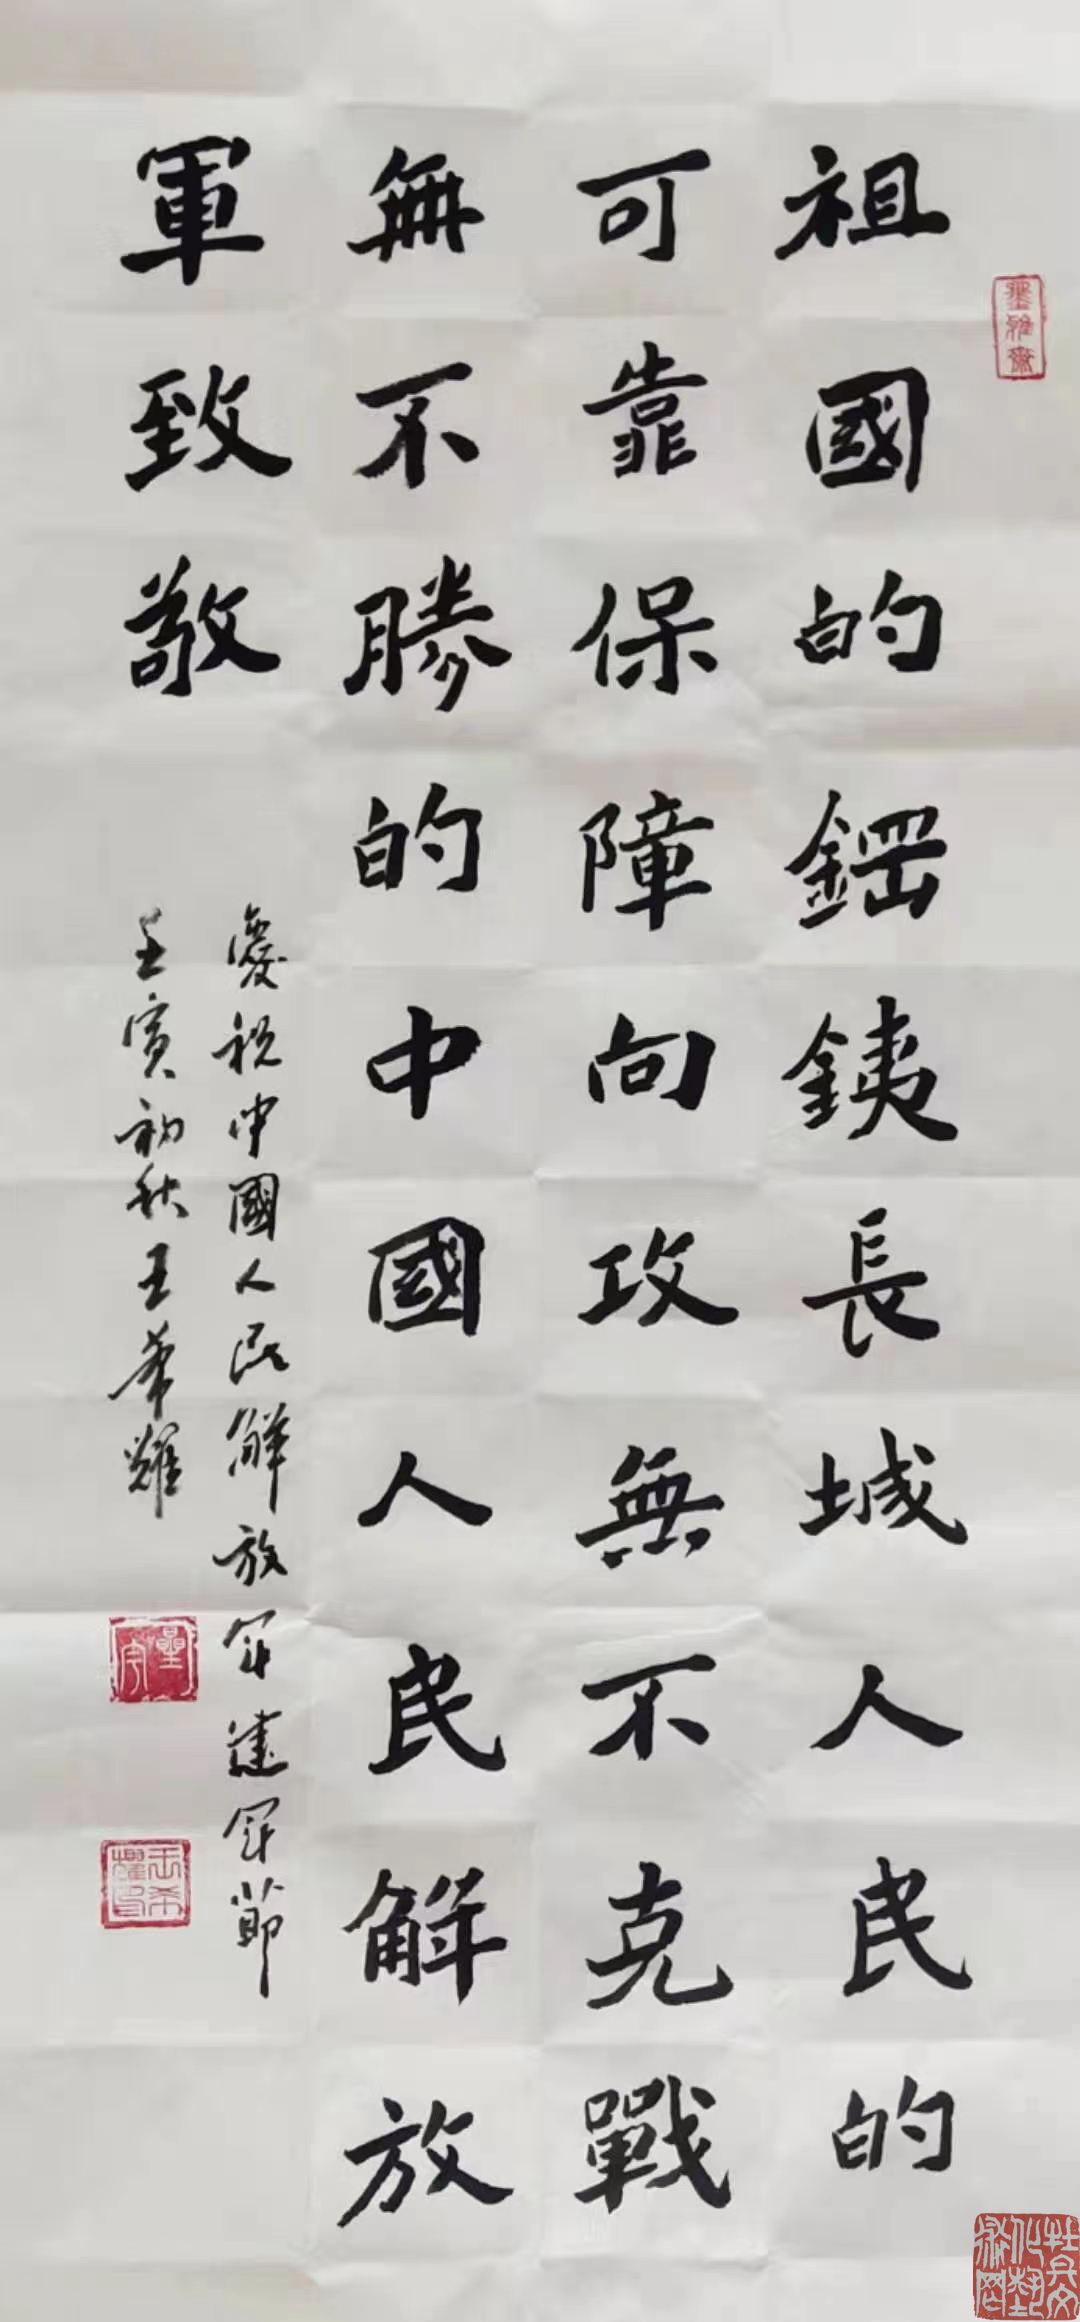 祖國的鋼銕長城人民的
可靠保障向攻無不克戰
無不勝的中國人民解放
軍致敬
慶祝中國人民解放军建军節
壬寅初秋王希耀
墨雅齋
王希耀印